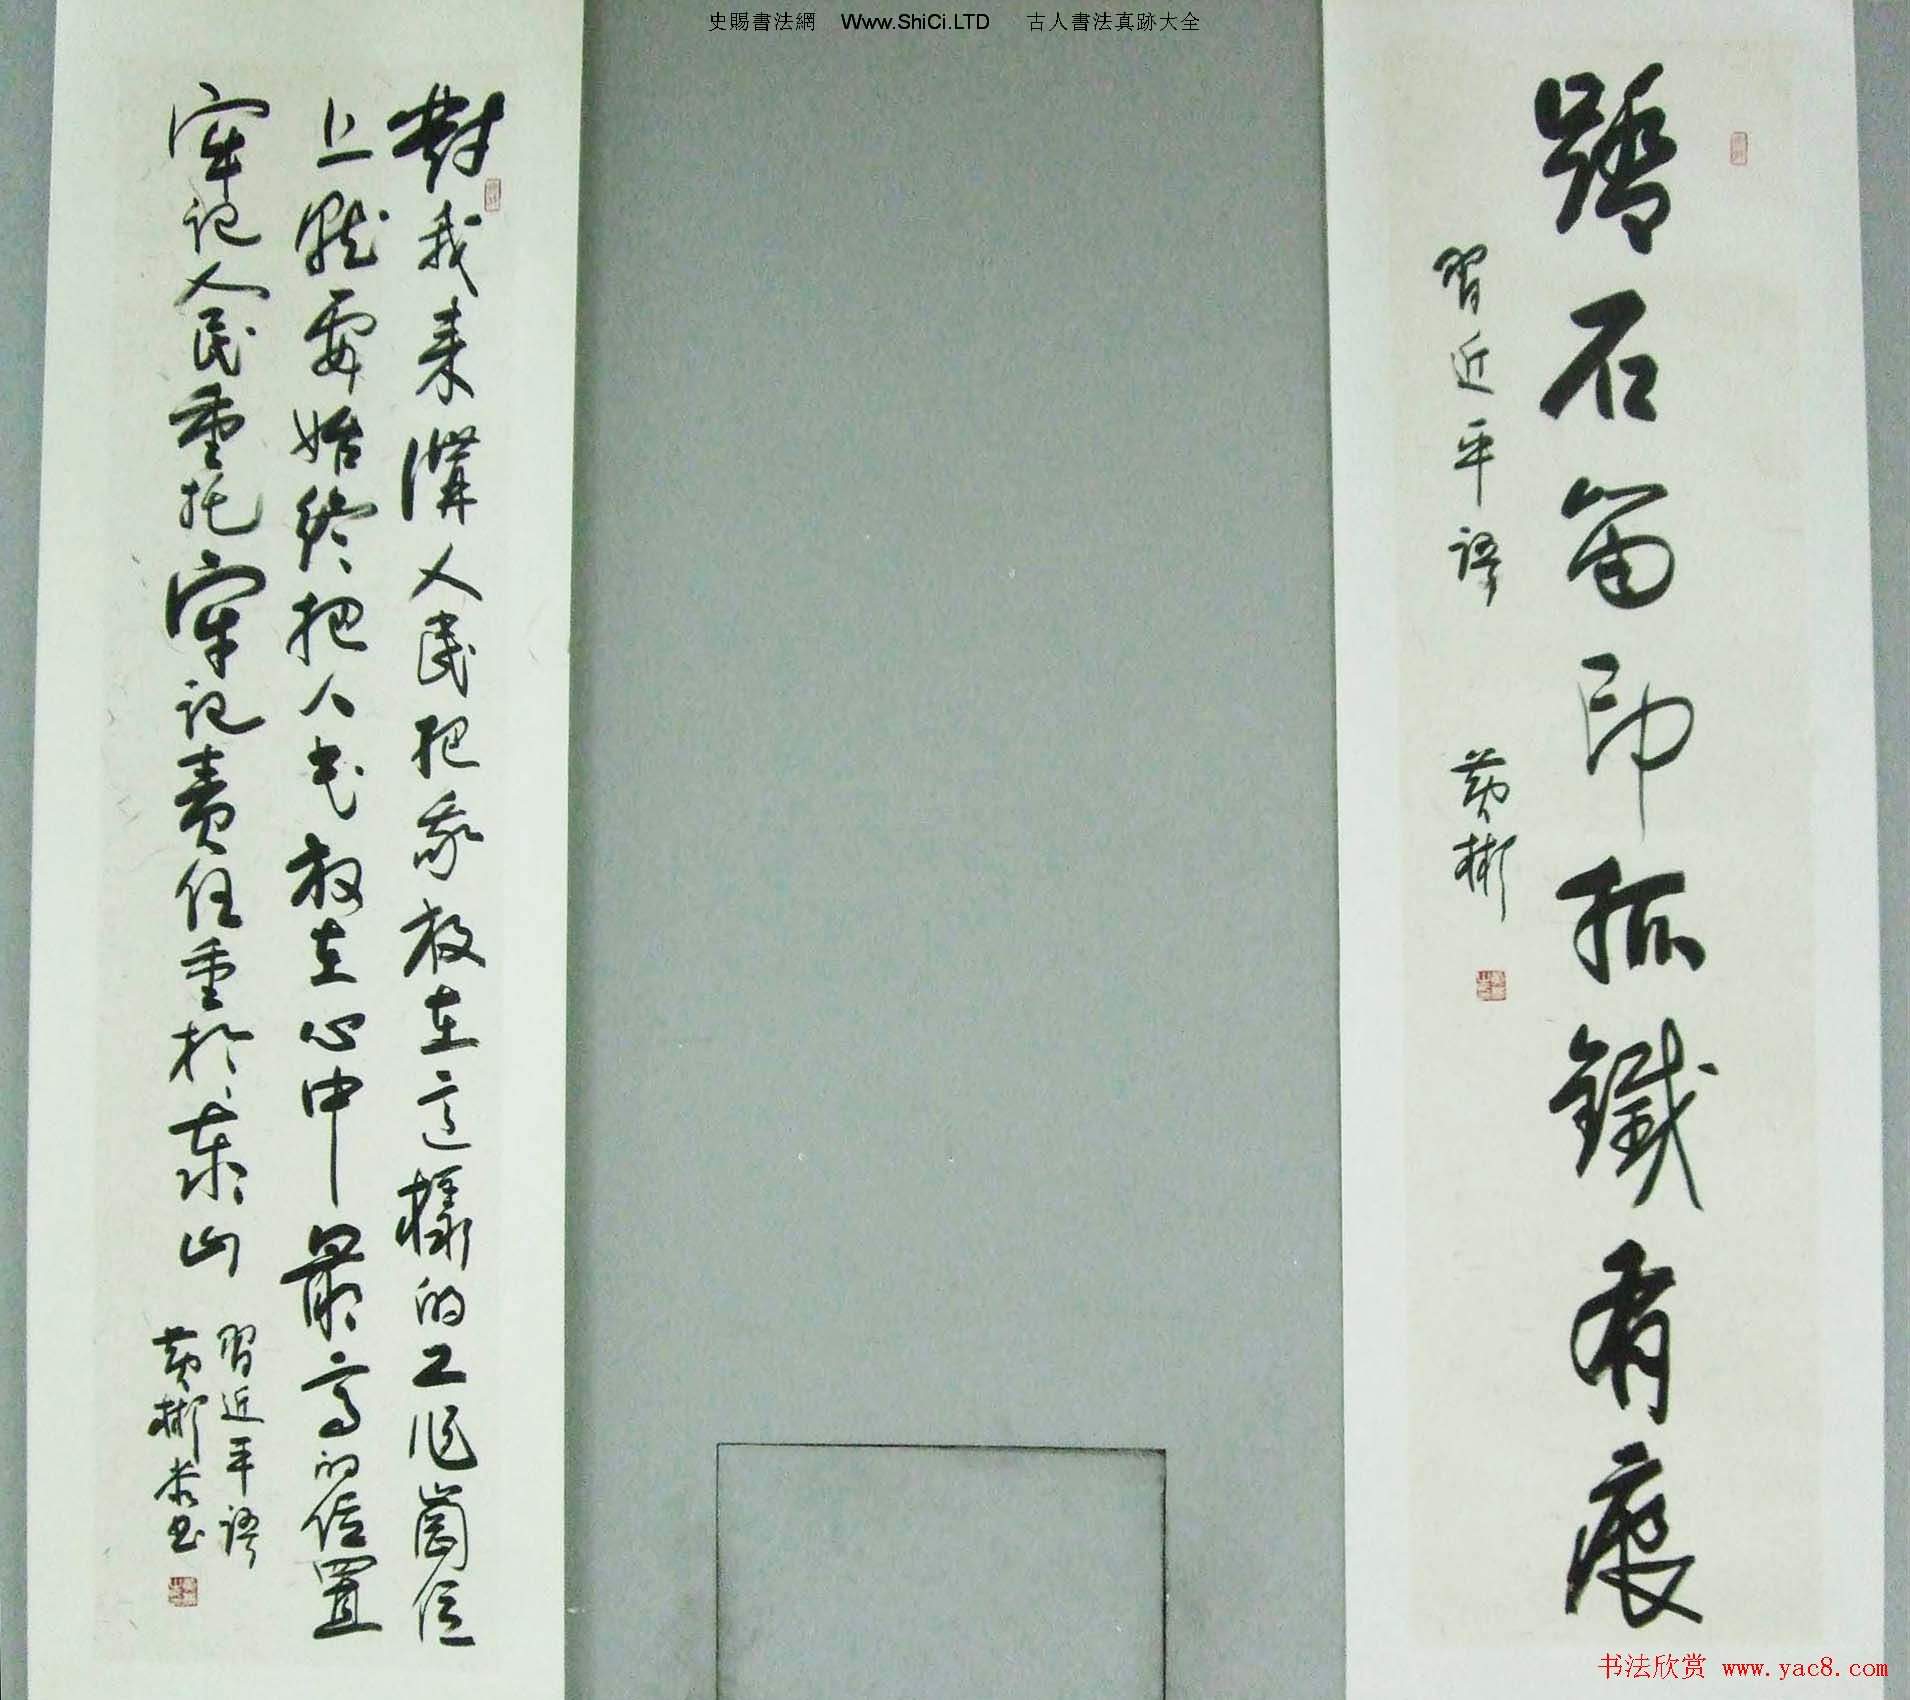 史賜書法網 Www.ShiCi.LTD 古人書法真跡大全
踏石留印抓鐵有痕
習近平語 黄彬
對我来講人民把我放在這樣的工作崗位
上就要始終把人民放在心中最高的位置
牢記人民重托牢記責任重於泰山
習近平語
黄彬书
书法欣赏 www.yac8.com